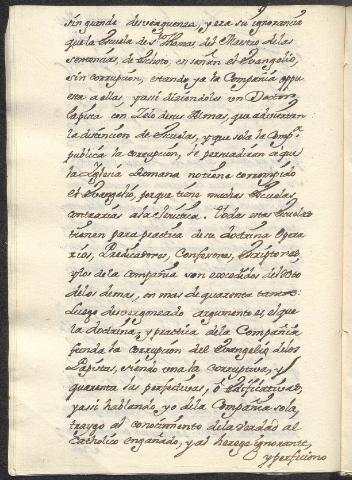 sin grande desverguenza, y era su ignorancia
que la Escuela de Sto Thomas, del Maestro de las
sentencias, de Escoto, enseñan el Evangelio,
sin corrupcion, estando ya la Compañia oppu
esta a ellas, y assi diziendoles un Doctor
Papista con zelo de sus Almas, que adviertan
la distincion de Escuelas, y que sola la Compa
publica la corrupcion, se persuadiran a que
la Iglesia Romana no tiene corrompido
el Evangelio, porque tiene muchas Escuelas
contrarias a la Jesuitica. Todas estas Escuelas
tienen para practica de su doctrina Opera
rios, Predicadores, Confesores, Escriptores,
y los de la Compañia son excedidos del voto
de los demas, en mas de quarenta tantos:
Luego desvergonzado argumento es, el que
la doctrina, y practica de la Compañia
funda la corrupcion del Evangelio de los
Papistas, siendo una la corruptiva, y
quarenta las perfectivas, ò edificativas,
y assi hablando yo de la Compañia sola,
traygo al conocimiento de la verdad al
Catholico engañado, y al herege ignorante,
y perficiono